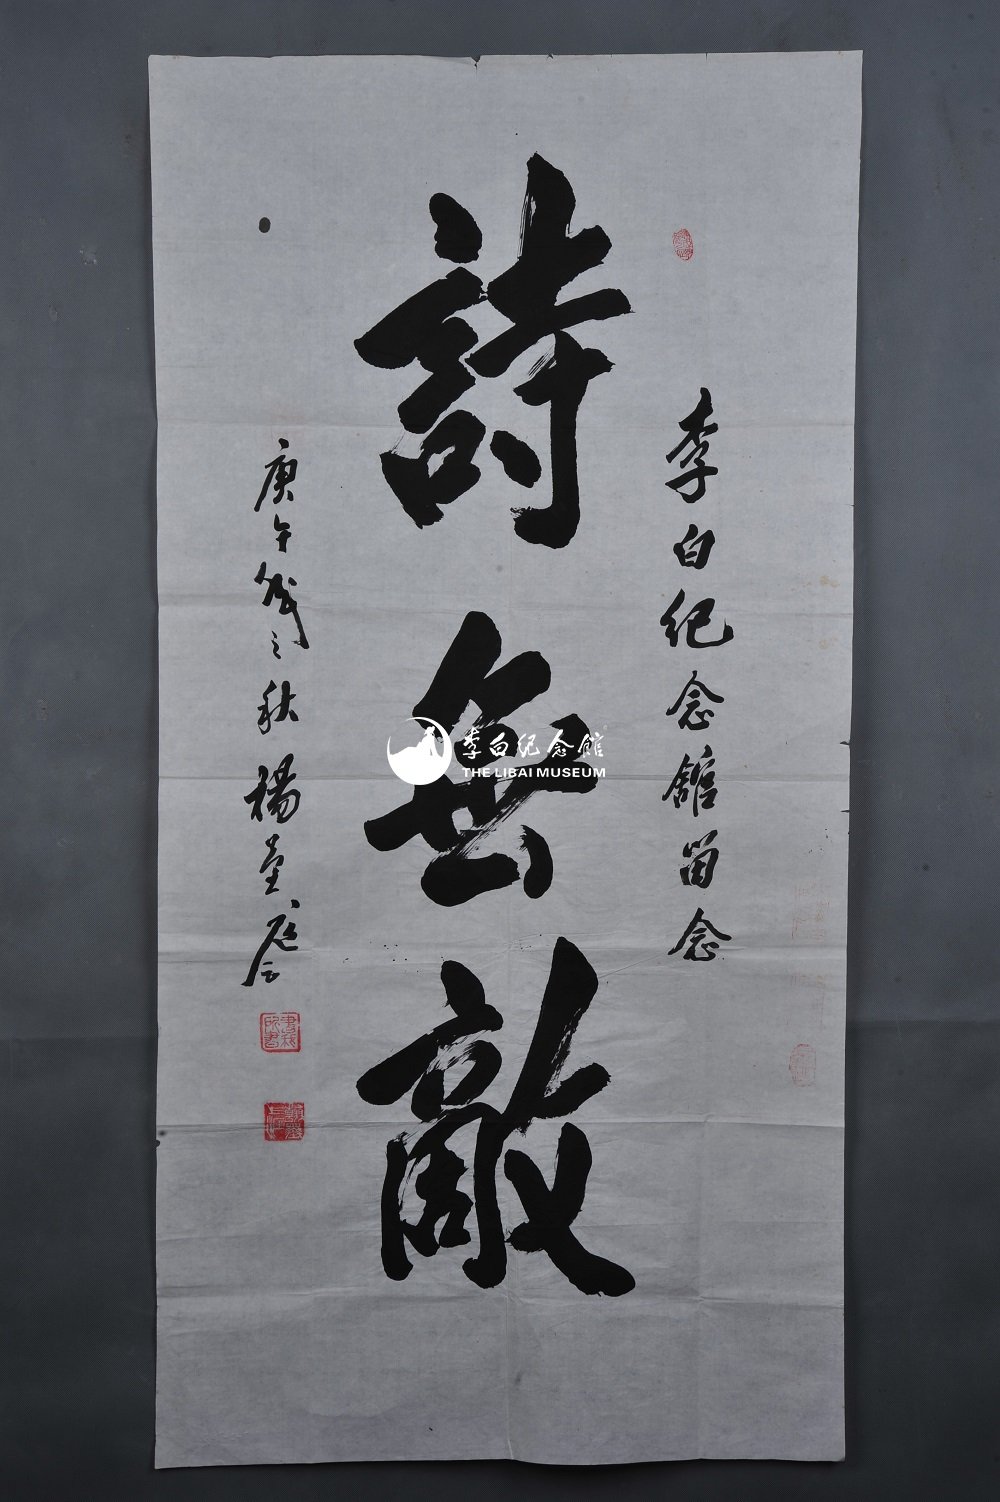 李白纪念館留念
詩無敵
庚午歲之秋楊
李白纪念館
THE LIBAI MUSEUM